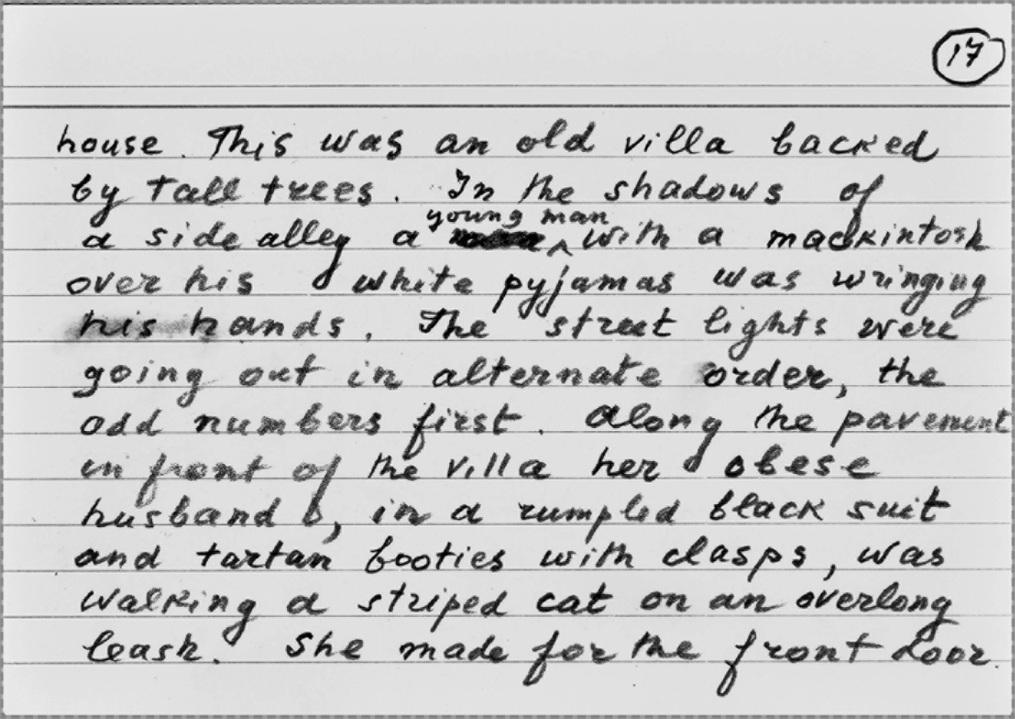 17
house. This was an old villa backed
by tall trees. In the shadows of
young man
a side alley a with a mackintosh
over his white pyjamas was wringing
his hands. The street lights were
going out in alternate order, the
odd numbers first. Along the pavement
in front of the villa her obese
husband, in a rumpled black suit
and tartan booties with clasps, was
walking a striped cat on an overlong
leash. She made for the front door.